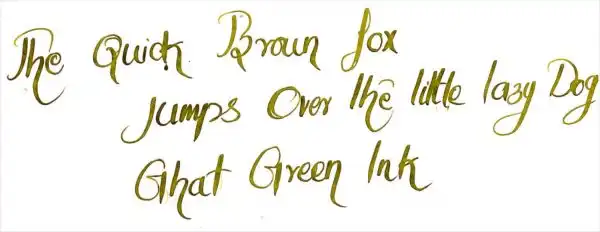 The Quick Brown fox
Jumps Over The little lazy Dog
Ghat Green Ink